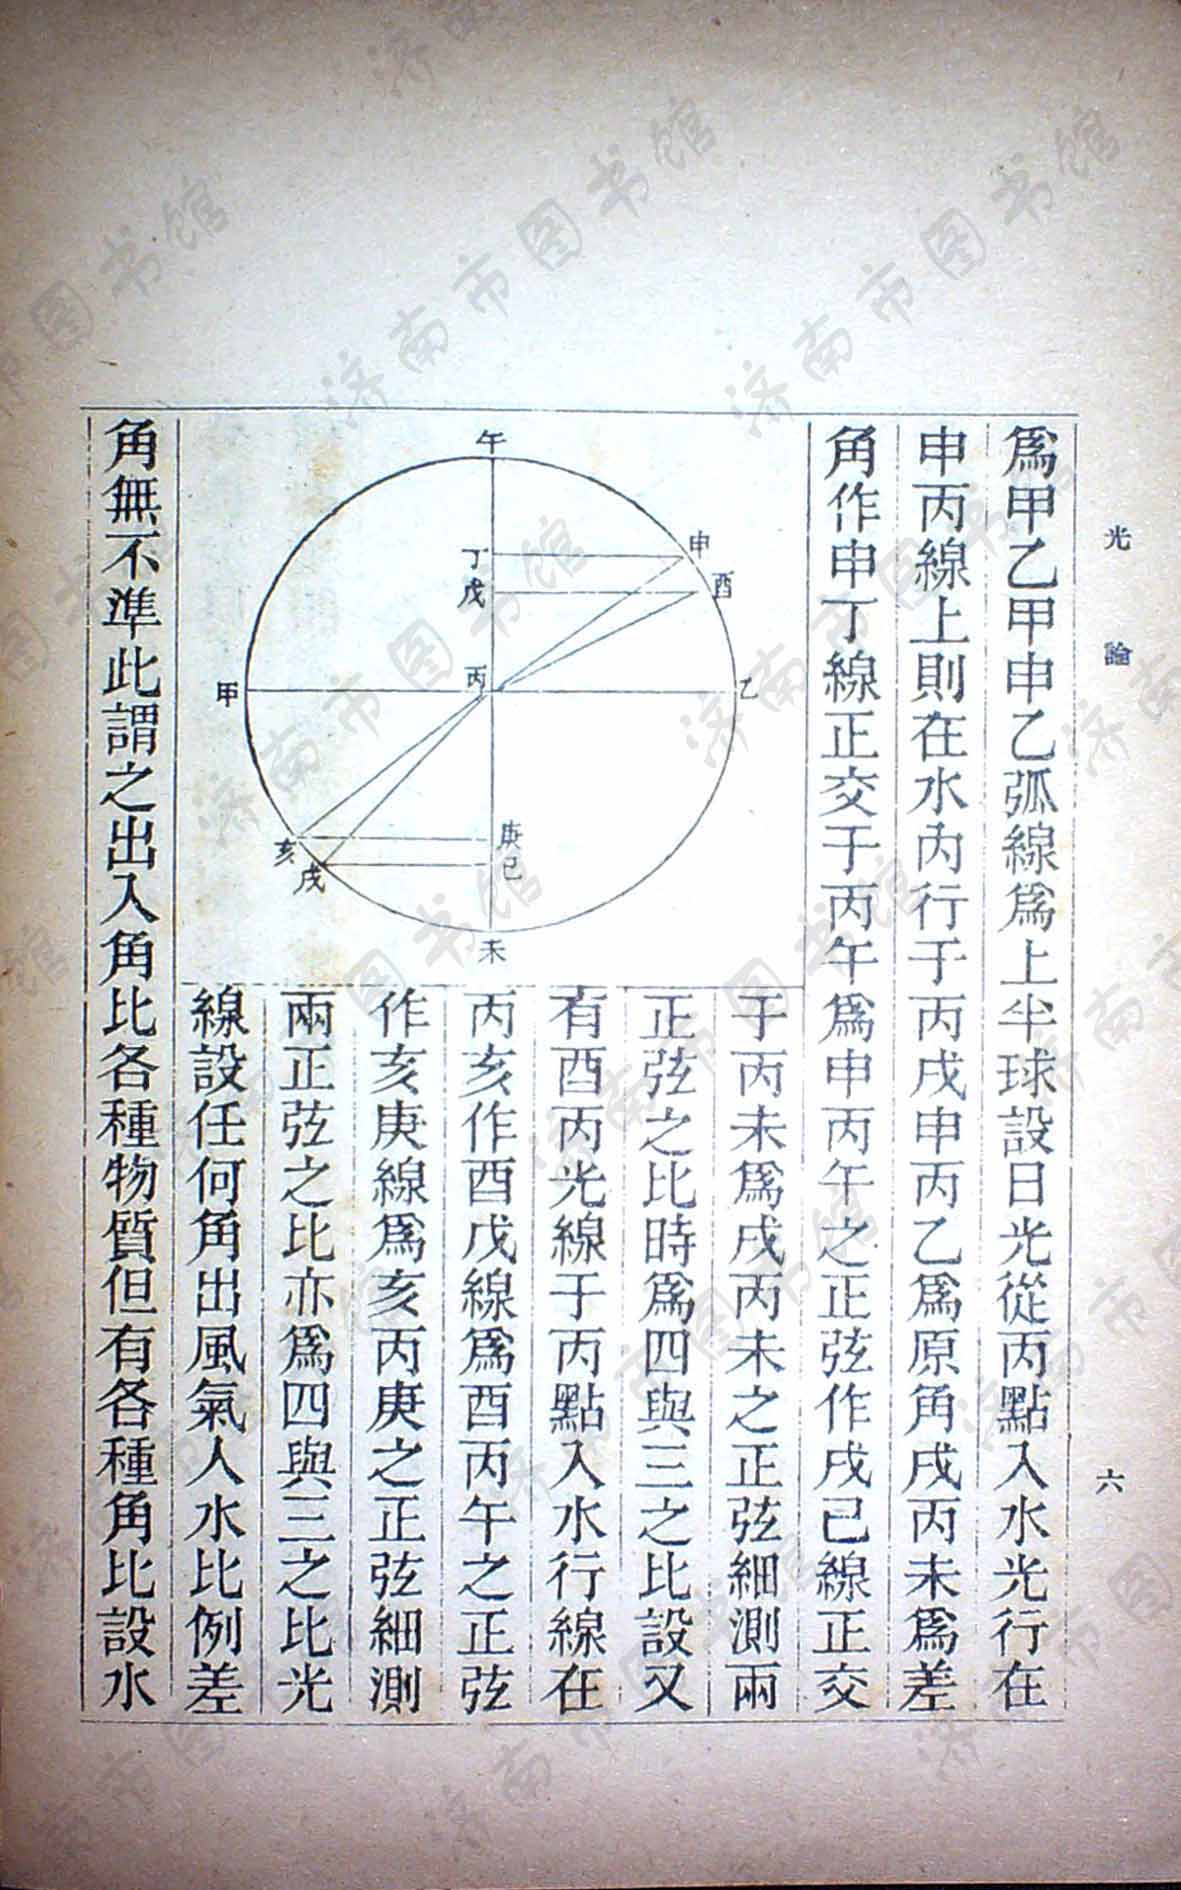 光論 六
爲甲乙甲申乙弧線爲上半球設日光從丙點入水光行在
申丙線上則在水內行于丙戌申丙乙爲原角戌丙未爲差
角作申丁線正交于丙午爲申丙午之正弦作戌己線正交
于丙未爲戌丙未之正弦細測兩
正弦之比時爲四與三之比設又
有酉丙光線于丙點入水行線在
丙亥作酉戊線爲酉丙午之正弦
作亥庚線爲亥丙庚之正弦細測
兩正弦之比亦爲四與三之比光
線設任何角出風氣人水比例差
角無不準此謂之出入角比各種物質但有各種角比設水
午
申
丁
酉
戊
丙
甲
乙
庚
亥
己
戌
未
济南市图书馆